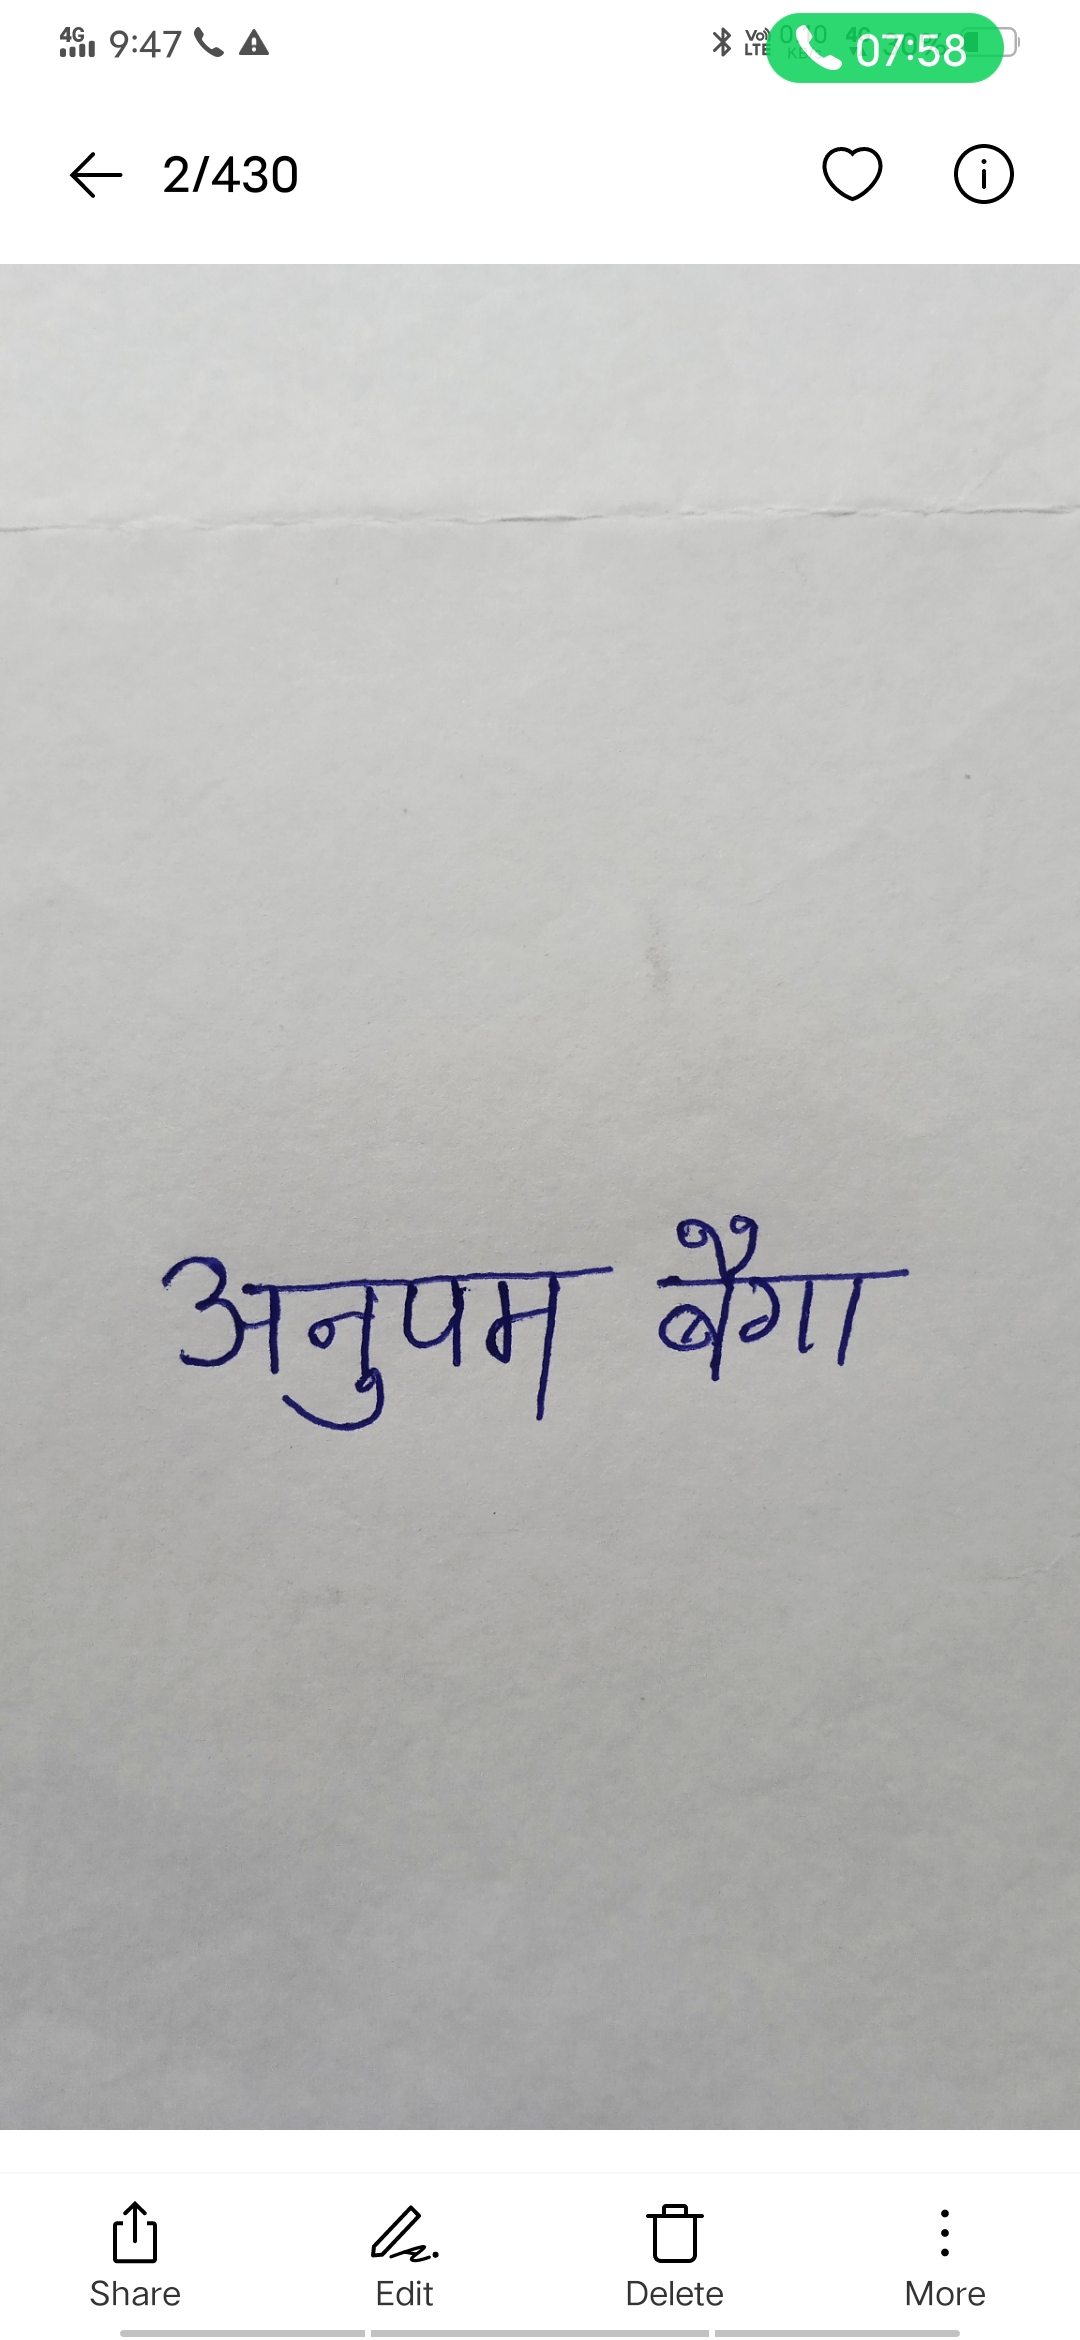 4G 9:47 07:58
2/430
अनुपम बैगा
Share Edit Delete More